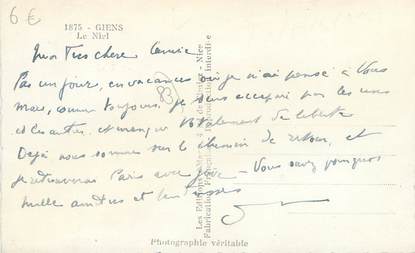 6 €
1875 - GIENS
Le Niel
Mon Très chère Amie
Pas un jour, en vacances où je n'ai pensé à vous
mais, comme toujours, je suis occupé par les uns
et les autres et manque totalement de liberté
Déjà nous sommes sur le chemin de retour, et
je retrouverai Paris avec joie - Vous savez pourquoi
mille amitiés et
(83)
Les Editions
Nice
Fabrication Française - Reproduction interdite
Photographie véritable